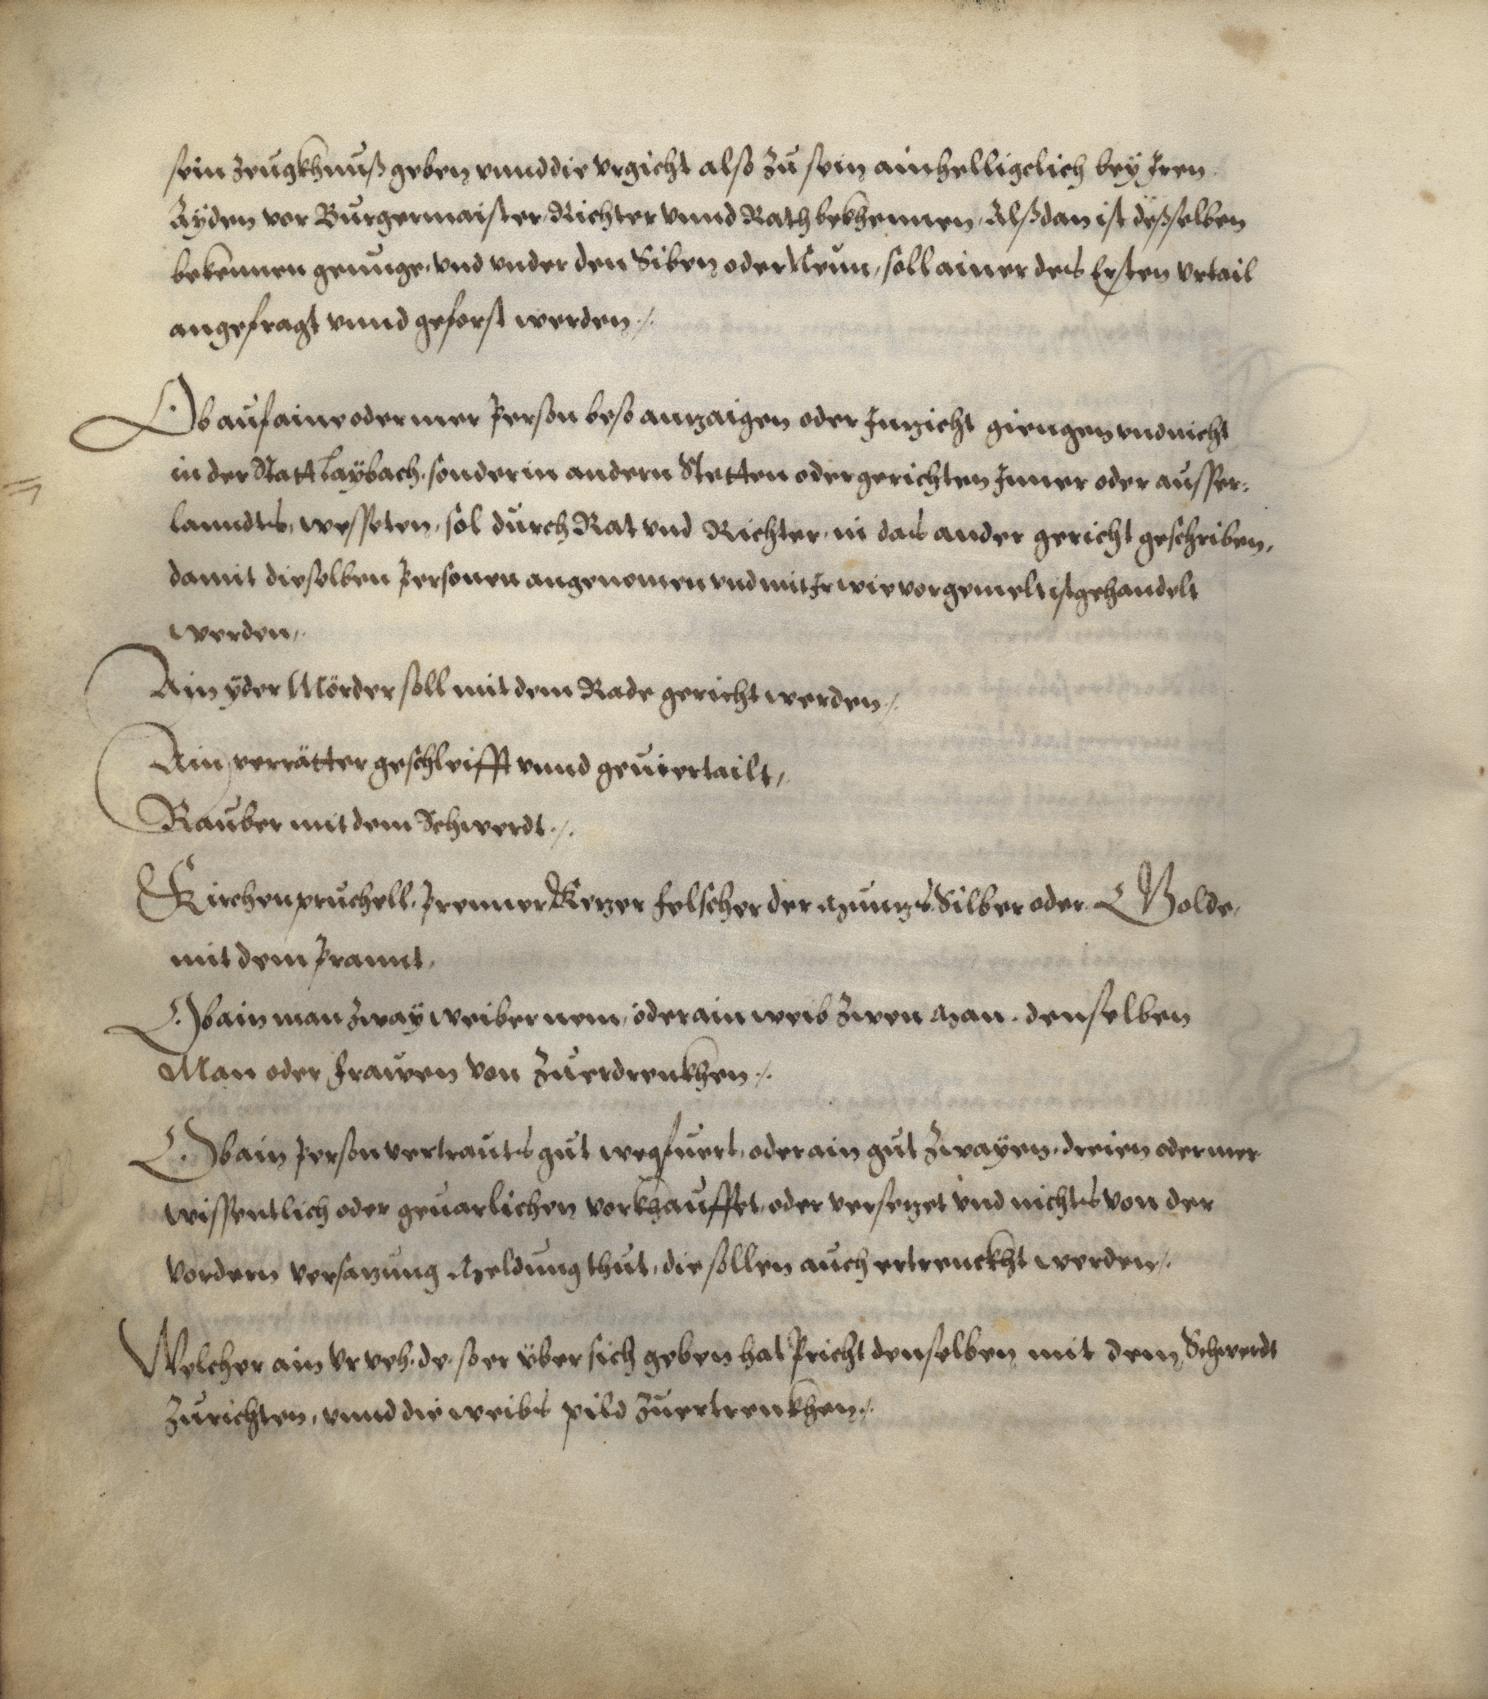 sein zeugkhnuß geben vnnd die vrgicht also zu sein ainhelligclich bey Iren
Äyden vor Burgermaister Richter vnnd Rath bekhennen, Alßdan ist deßselben
bekennen genuge, vnd vnder den Siben oder Neun, soll ainer des Ersten vrtail
angefragt vnnd geforst werden ./.
Ob auf aine oder mer person böß anzaigen oder Inzicht giengen vnd nicht
in der Statt Laybach, sonder in andern Stetten oder gerichten Inner oder ausser=
lanndts, wesseten, sol durch Rat vnd Richter, in das ander gericht geschriben,
damit dieselben personen angenomen vnd mit Ir wie vorgemelt ist gehandelt
werden,
Ain yder Mörder soll mit dem Rade gericht werden ./.
Ain verrätter geschleifft vnnd geuiertailt,
Rauber mit dem Schwerdt ./.
Kirchenpruchell, prenner, Kezer felscher der munzs Silber oder Golde,
mit dem prannt,
Ob ain man zway weiber nem, oder ain weib zwen man, denselben
Man oder frawen von zuerdrenkhen ./.
Ob ain person vertrauts gut wegfuert, oder ain gut zwayen, dreien oder mer
wissentlich oder geuarlichen verkhauffet, oder versezet vnd nichts von der
vordern versazung meldung thut, die sollen auch ertrenckht werden ./.
Welcher ain vrveh.de, so er über sich geben hat pricht denselben mit dem Schwerdt
zurichten, vnnd die weibs pild zuertrenkhen ./.